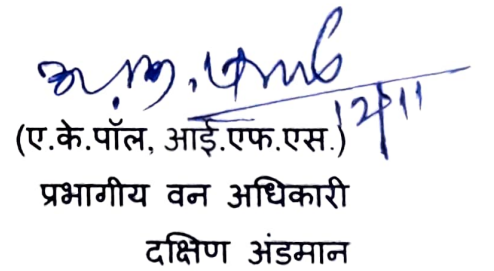 12/11
(ए.के.पॉल, आई.एफ.एस.)
प्रभागीय वन अधिकारी
दक्षिण अंडमान